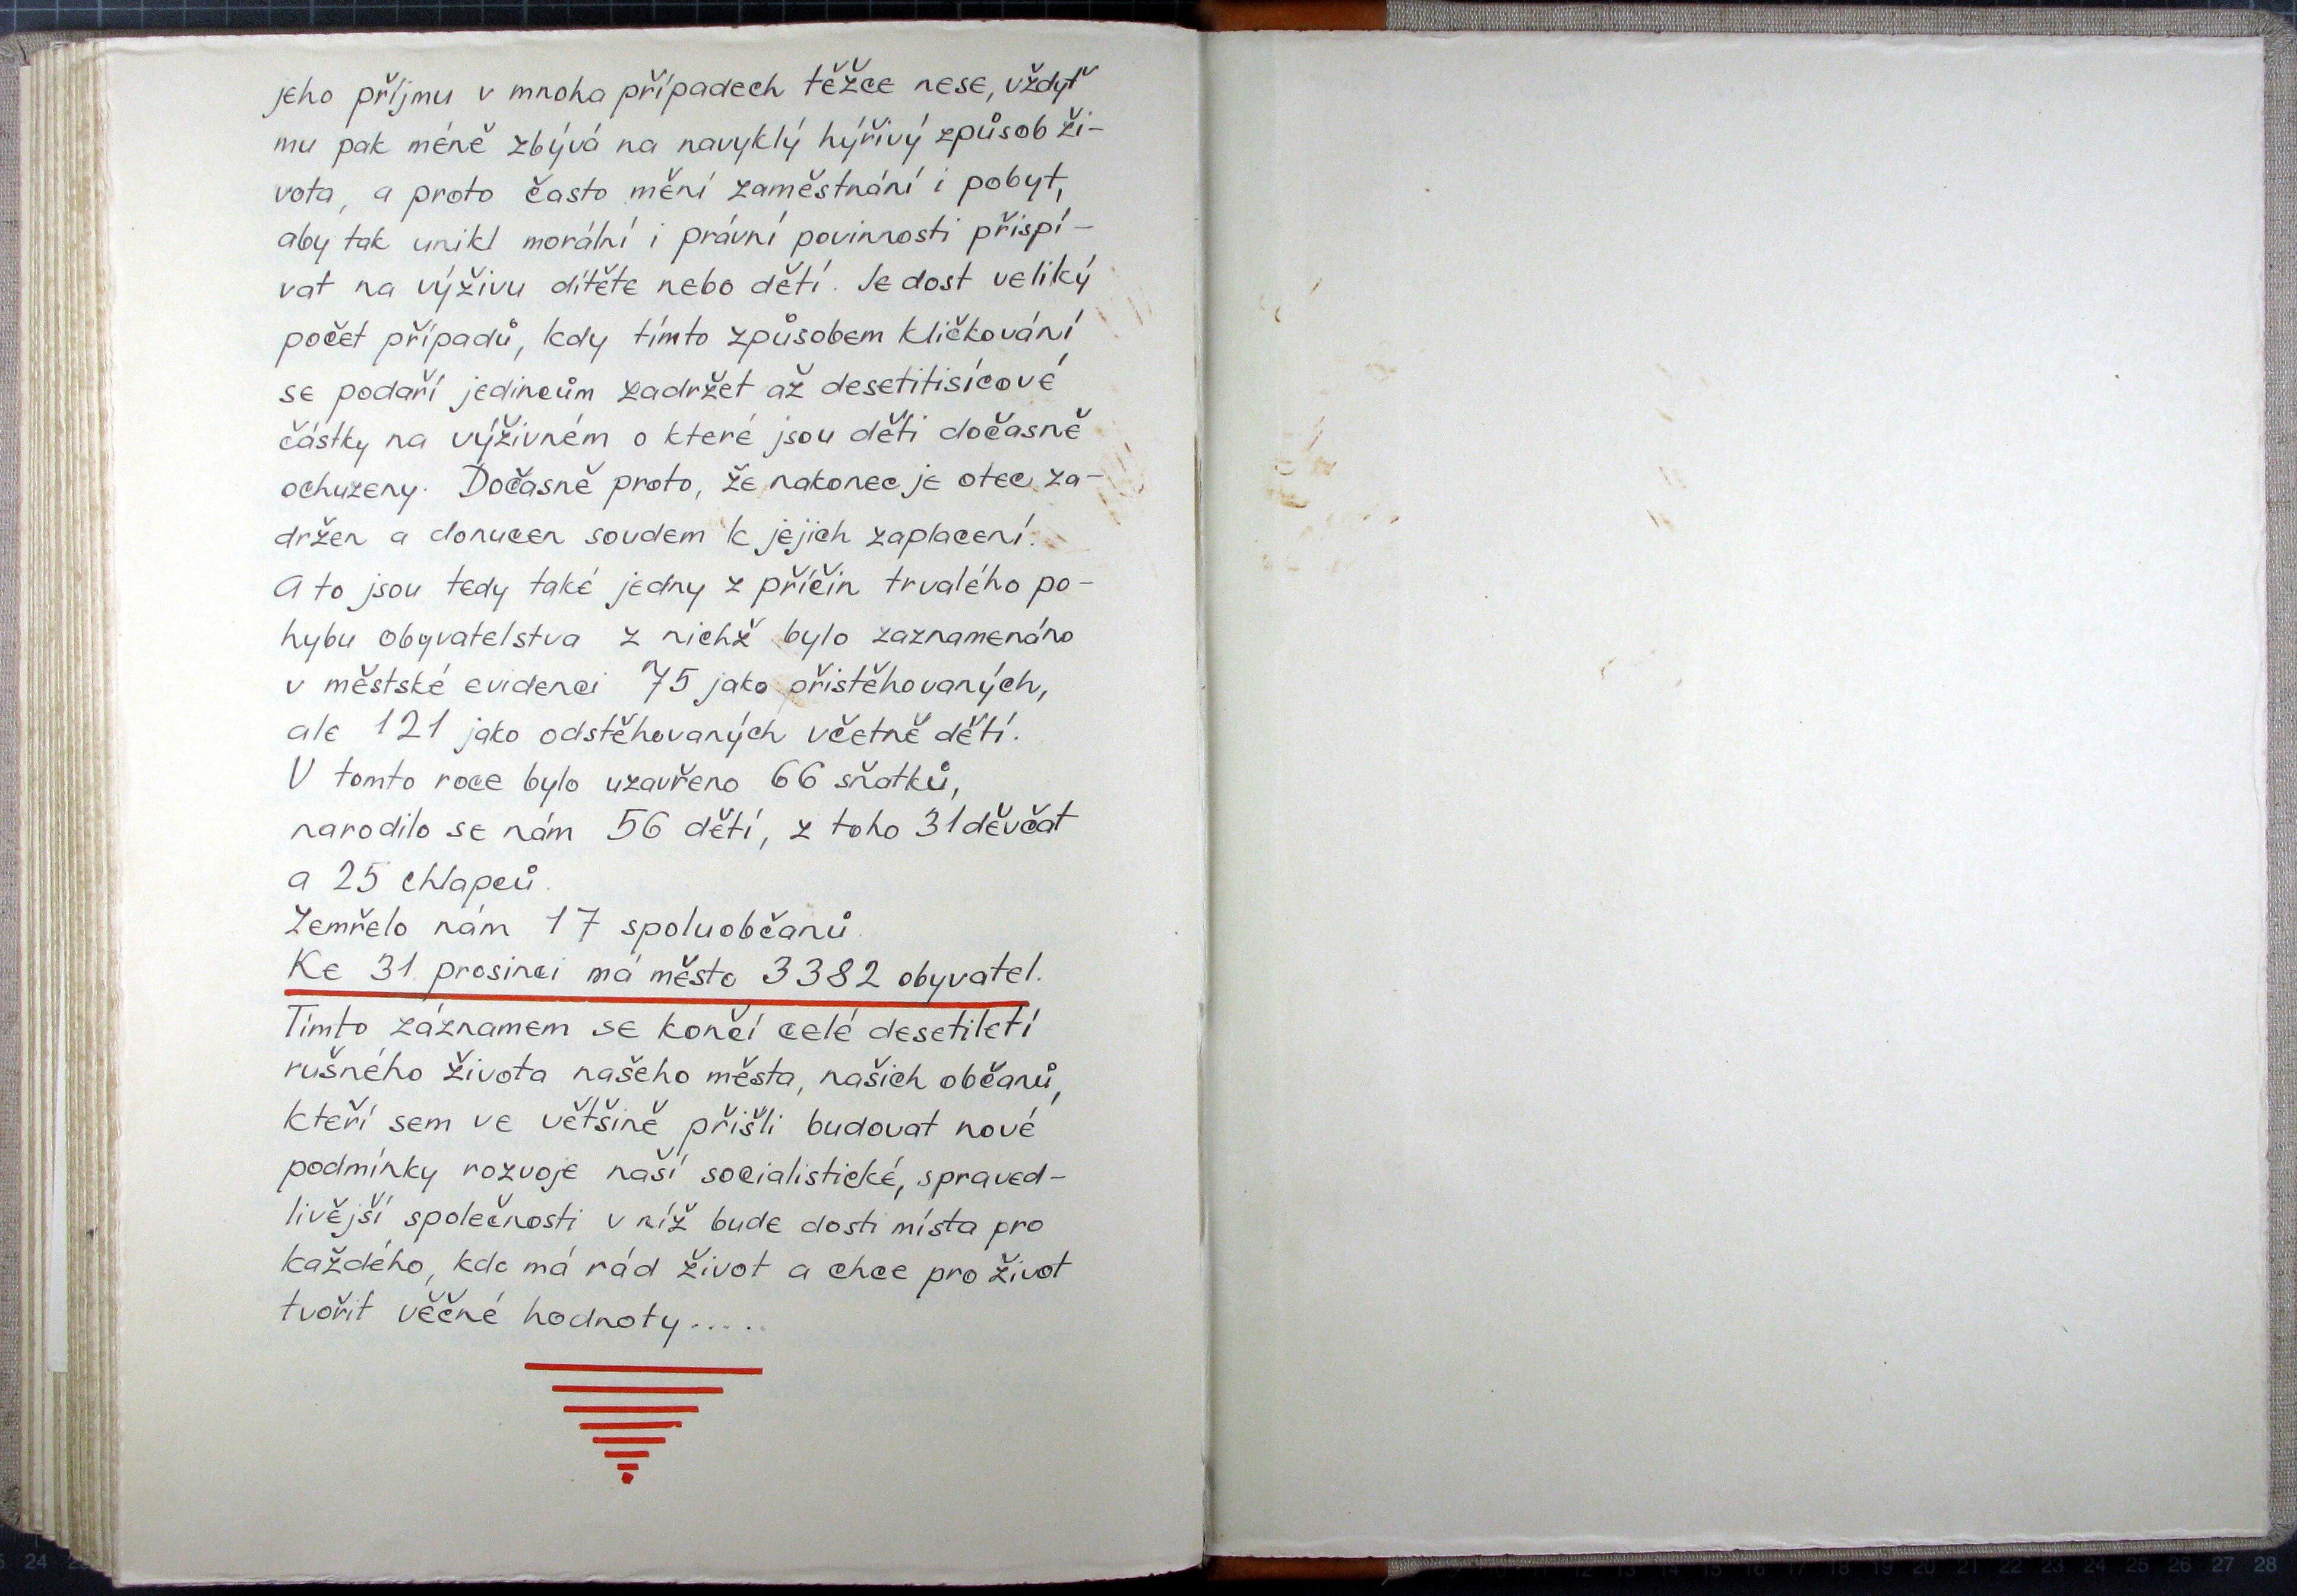 jeho příjmu v mnoha případech těžce nese, vždyť
mu pak méně zbývá na navyklý hýřivý způsob ži-
vota, a proto často mění zaměstnání i pobyt,
aby tak unikl morální i právní povinnosti přispí-
vat na výživu dítěte nebo dětí. Je dost veliký
počet případů, kdy tímto způsobem kličkování
se podaří jedincům zadržet až desetitisícové
částky na výživném o které jsou děti dočasně
ochuzeny. Dočasně proto, že nakonec je otec za-
držen a donucen soudem k jejich zaplacení.
A to jsou tedy také jedny z příčin trvalého po-
hybu obyvatelstva z nichž bylo zaznamenáno
v městské evidenci 75 jako přistěhovaných,
ale 121 jako odstěhovaných včetně dětí.
V tomto roce bylo uzavřeno 66 sňatků,
narodilo se nám 56 dětí, z toho 31 děvčat
a 25 chlapců.
Zemřelo nám 17 spoluobčanů.
Ke 31. prosinci má město 3382 obyvatel.
Tímto záznamem se končí celé desetiletí
rušného života našeho města, našich občanů,
kteří sem ve většině přišli budovat nové
podmínky rozvoje naší socialistické, spraved-
livější společnosti v níž bude dosti místa pro
každého, kdo má rád život a chce pro život
tvořit věčné hodnoty.....
24
19 20 21 22 23 24 25 26 27 28